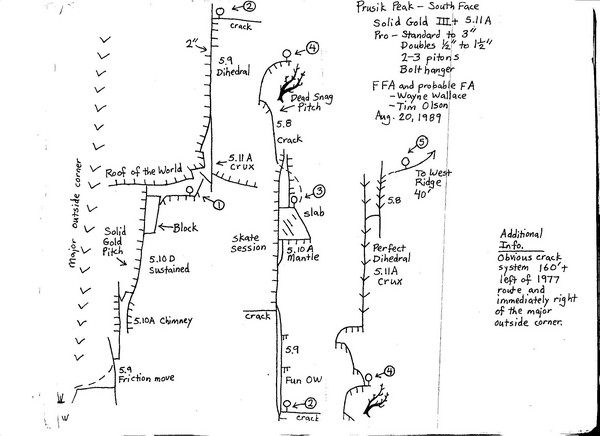 Prusik Peak - South Face
Solid Gold III+ 5.11A
Pro - Standard to 3"
Doubles ½" to 1½"
2-3 pitons
Bolt hanger
FFA and probable FA
- Wayne Wallace
- Tim Olson
Aug. 20, 1989
2
crack
2"
5.9
Dihedral
Roof of the World
5.11A
Crux
1
Block
Major outside corner
Solid
Gold
Pitch
5.10D
Sustained
5.10A Chimney
5.9
Friction move
4
Dead Snag
Pitch
5.8
Crack
3
slab
5.10A
Mantle
Skate
Session
crack
5.9
Fun OW
2
crack
5
To West
Ridge
40'
5.8
Perfect
Dihedral
5.11A
Crux
4
Additional
Info.
Obvious crack
system 160'+
left of 1977
route and
immediately right
of the major
outside corner.